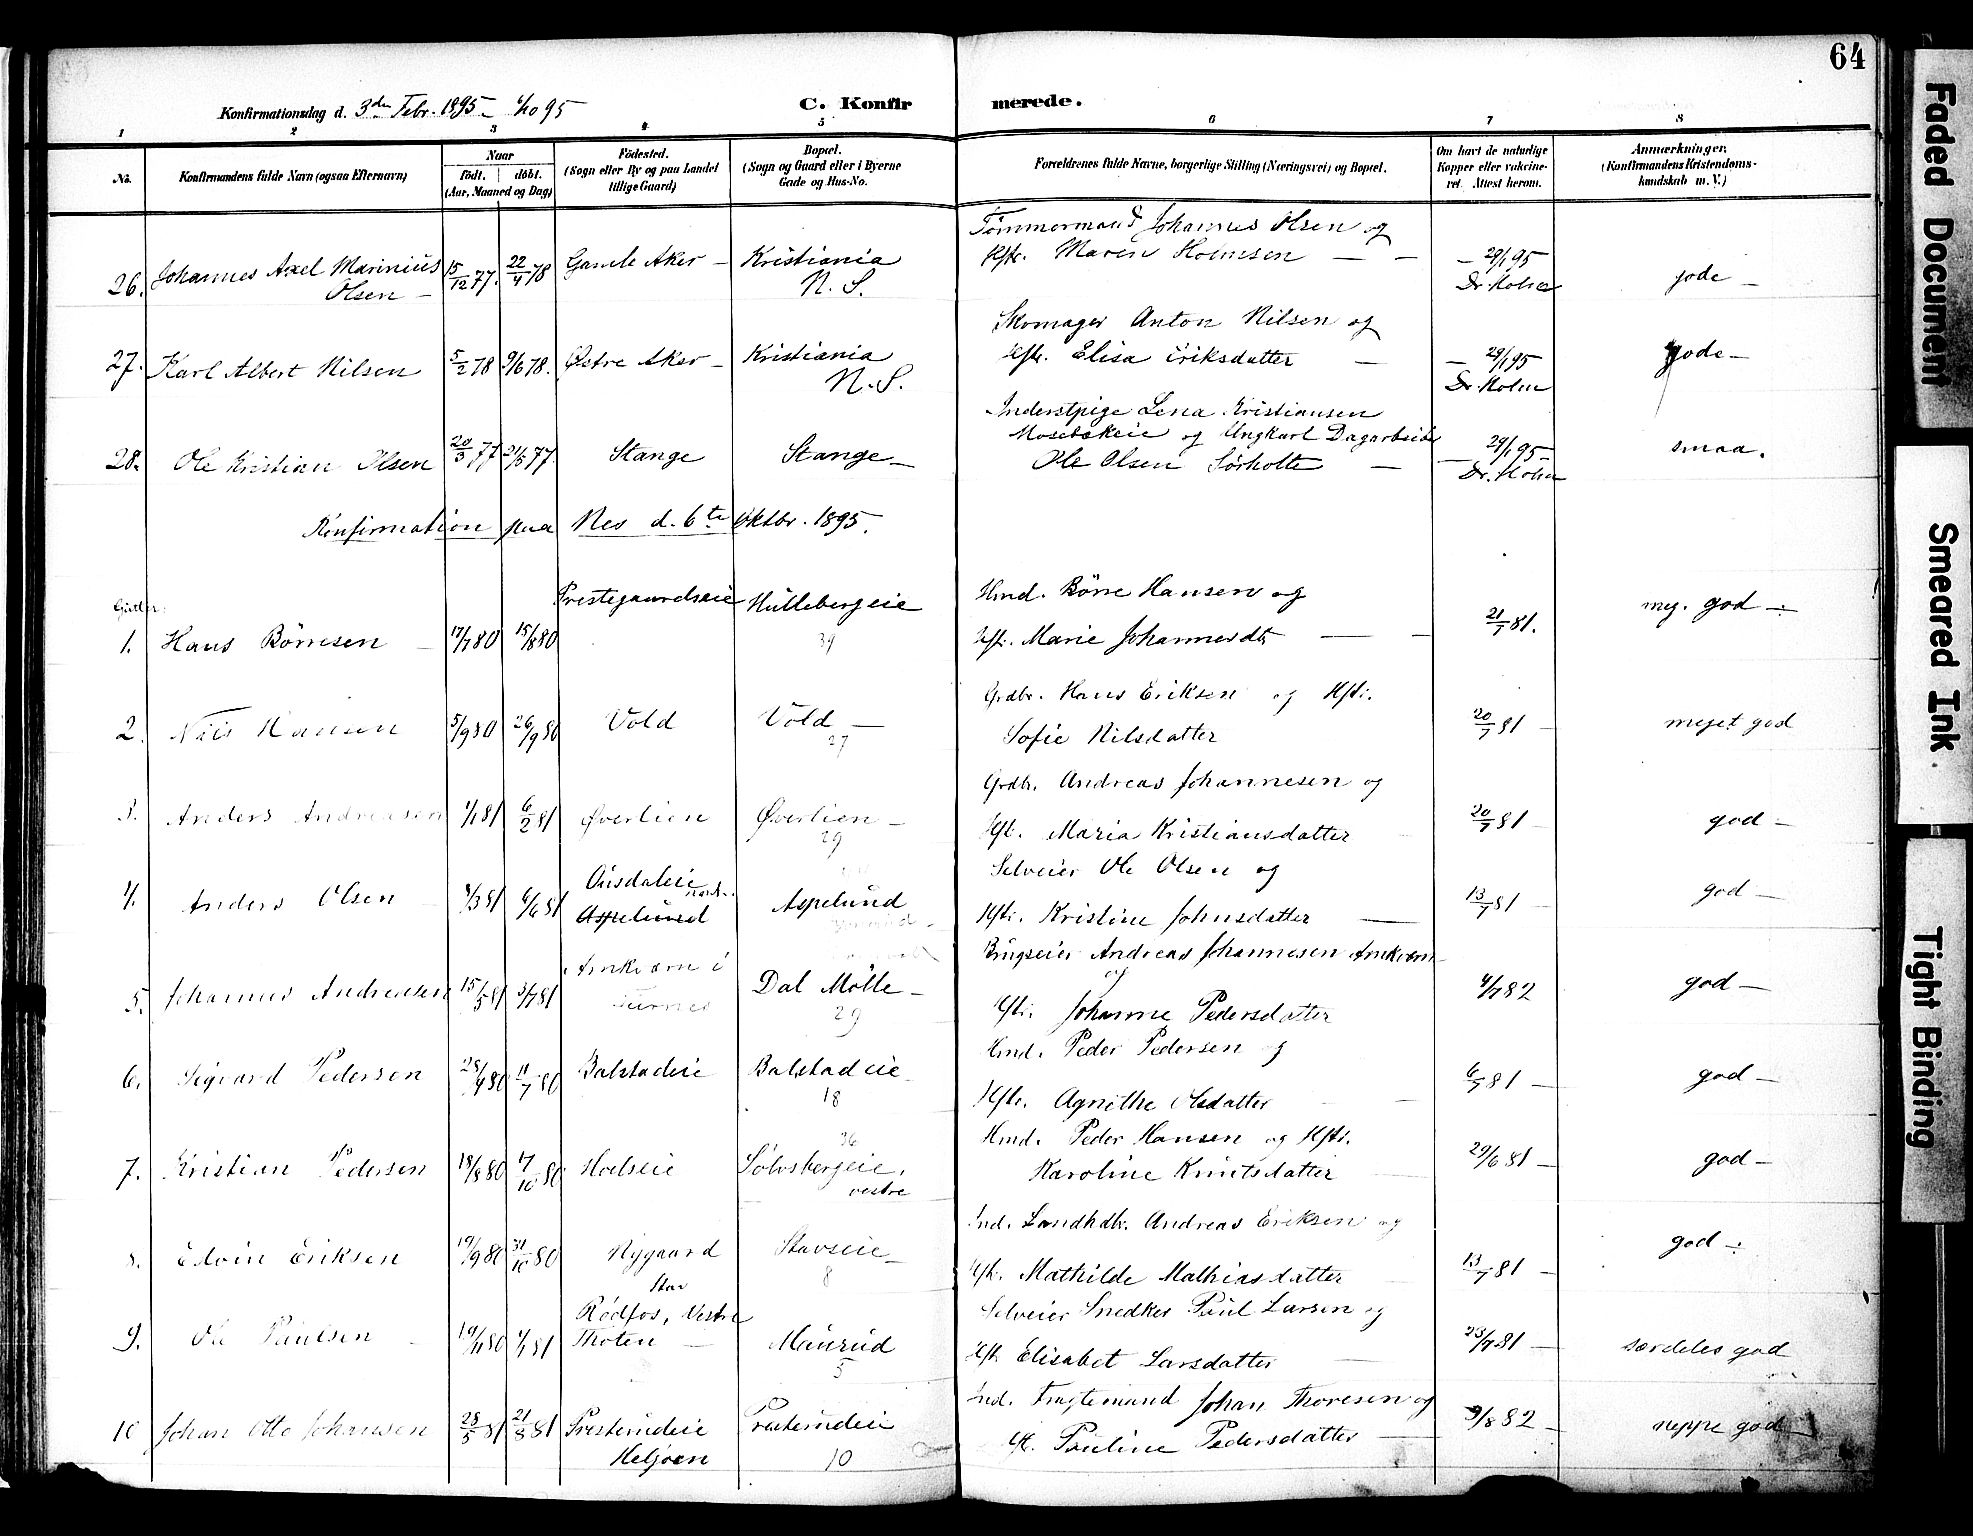 64
Konfirmationsdag d. 3den Febr. 1895 – 6/10 95
C. Konfirmerede.
1 2 3 4 5 6 7 8
No.
Konfirmandens fulde Navn (ogsaa Efternavn)
Naar
födt. döbt.
(Aar, Maaned og Dag)
Födested.
(Sogn eller By og paa Landet
tillige Gaard)
Bopæl.
(Sogn og Gaard eller i Byerne
Gade og Hus-No.
Forældrenes fulde Navne, borgerlige Stilling (Næringsvei) og Bopæl.
Om havt de naturlige
Kopper eller vakcine-
ret. Attest herom.
Anmærkninger.
(Konfirmandens Kristendoms-
kundskab m. V.)
26. Johannes Axel Marinius Olsen – 15/12 77. 22/4 78 Gamle Aker – Kristiania N. S. Tömmermand Johannes Olsen og Hstr. Maren Holmsen – – – 29/1 95 Dr. Holm gode –
27. Karl Albert Nilsen 5/2 78 9/6 78. Østre Aker – Kristiania N. S. Skomager Anton Nilsen og Hstr. Elisa Eriksdatter – – 29/1 95 Dr. Holm gode –
28. Ole Kristian Olsen 20/3 77 21/5 77. Stange Stange – Inderstpige Lena Kristiansen og Ungkarl Dagarbeider Ole Olsen Sörholte – – 29/1 95 – Dr. Holm smaa.
Konfirmation paa Nes d. 6te Oktbr. 1895.
Gutter:
1. Hans Börresen – 17/7 80 15/8 80 Prestegaardseie Hullebergeie 39 Hmd. Börre Hansen og Hstr. Marie Johannesdtr – – 21/7 81. meg. god –
2. Nils Hansen 5/9 80 26/9 80 Vold Vold – 27 Grdbr. Hans Eriksen og Hstr. Sofie Nilsdatter 20/7 81 – meget god
3. Anders Andreasen 1/1 81 6/2 81 Øverlien Øverlien – 29 Grdbr. Andreas Johannesen og Hst. Maria Kristiansdatter 20/7 81 – god –
4. Anders Olsen 4/3 81 6/6 81 nordr. Aspelund Aspelund Selveier Ole Olsen og Hstr. Kristine Johnsdatter – 13/7 81 – god –
5. Johannes Andreasen 15/5 81 3/7 81 Arnkværn i Furnes Dal Mölle – 29 Brugseier Andreas Johannesen Arnkværn og Hstr. Johanne Pedersdatter 4/7 82 god –
6. Sigvard Pedersen 11/7 80 Balstadeie Balstadeie – 18 Hmd. Peder Pedersen og Hstr. Agnethe Olsdatter 6/7 81 – god –
7. Kristian Pedersen 18/8 80 17/10 80 Hoelseie 36 Sölvsbergeie, vestre Hmd. Peder Hansen og Hstr. Karoline Knutsdatter – 29/6 81 – god –
8. Edvin Eriksen 19/9 80 31/10 80 Nygaard Stav Stavseie – 8 Ind. Landhdlr. Andreas Eriksen og Hstr. Mathilde Mathiasdatter 13/7 81 – god –
9. Ole Paulsen – 19/11 80 1/1 81 Rödfos, Vestre Thoten – Maurud 5 Selveier Snedker Paul Larsen og Hstr. Elisabet Larsdatter – 23/7 81 – særdeles god
10 Johan Otto Johansen 21/8 81 Presterudeie Helgöen Presterudeie 10 Ind. Fragtemand Johan Thoresen og Hstr. Pauline Pedersdatter – 9/8 82 – neppe god –
Faded Document
Smeared Ink
Tight Binding